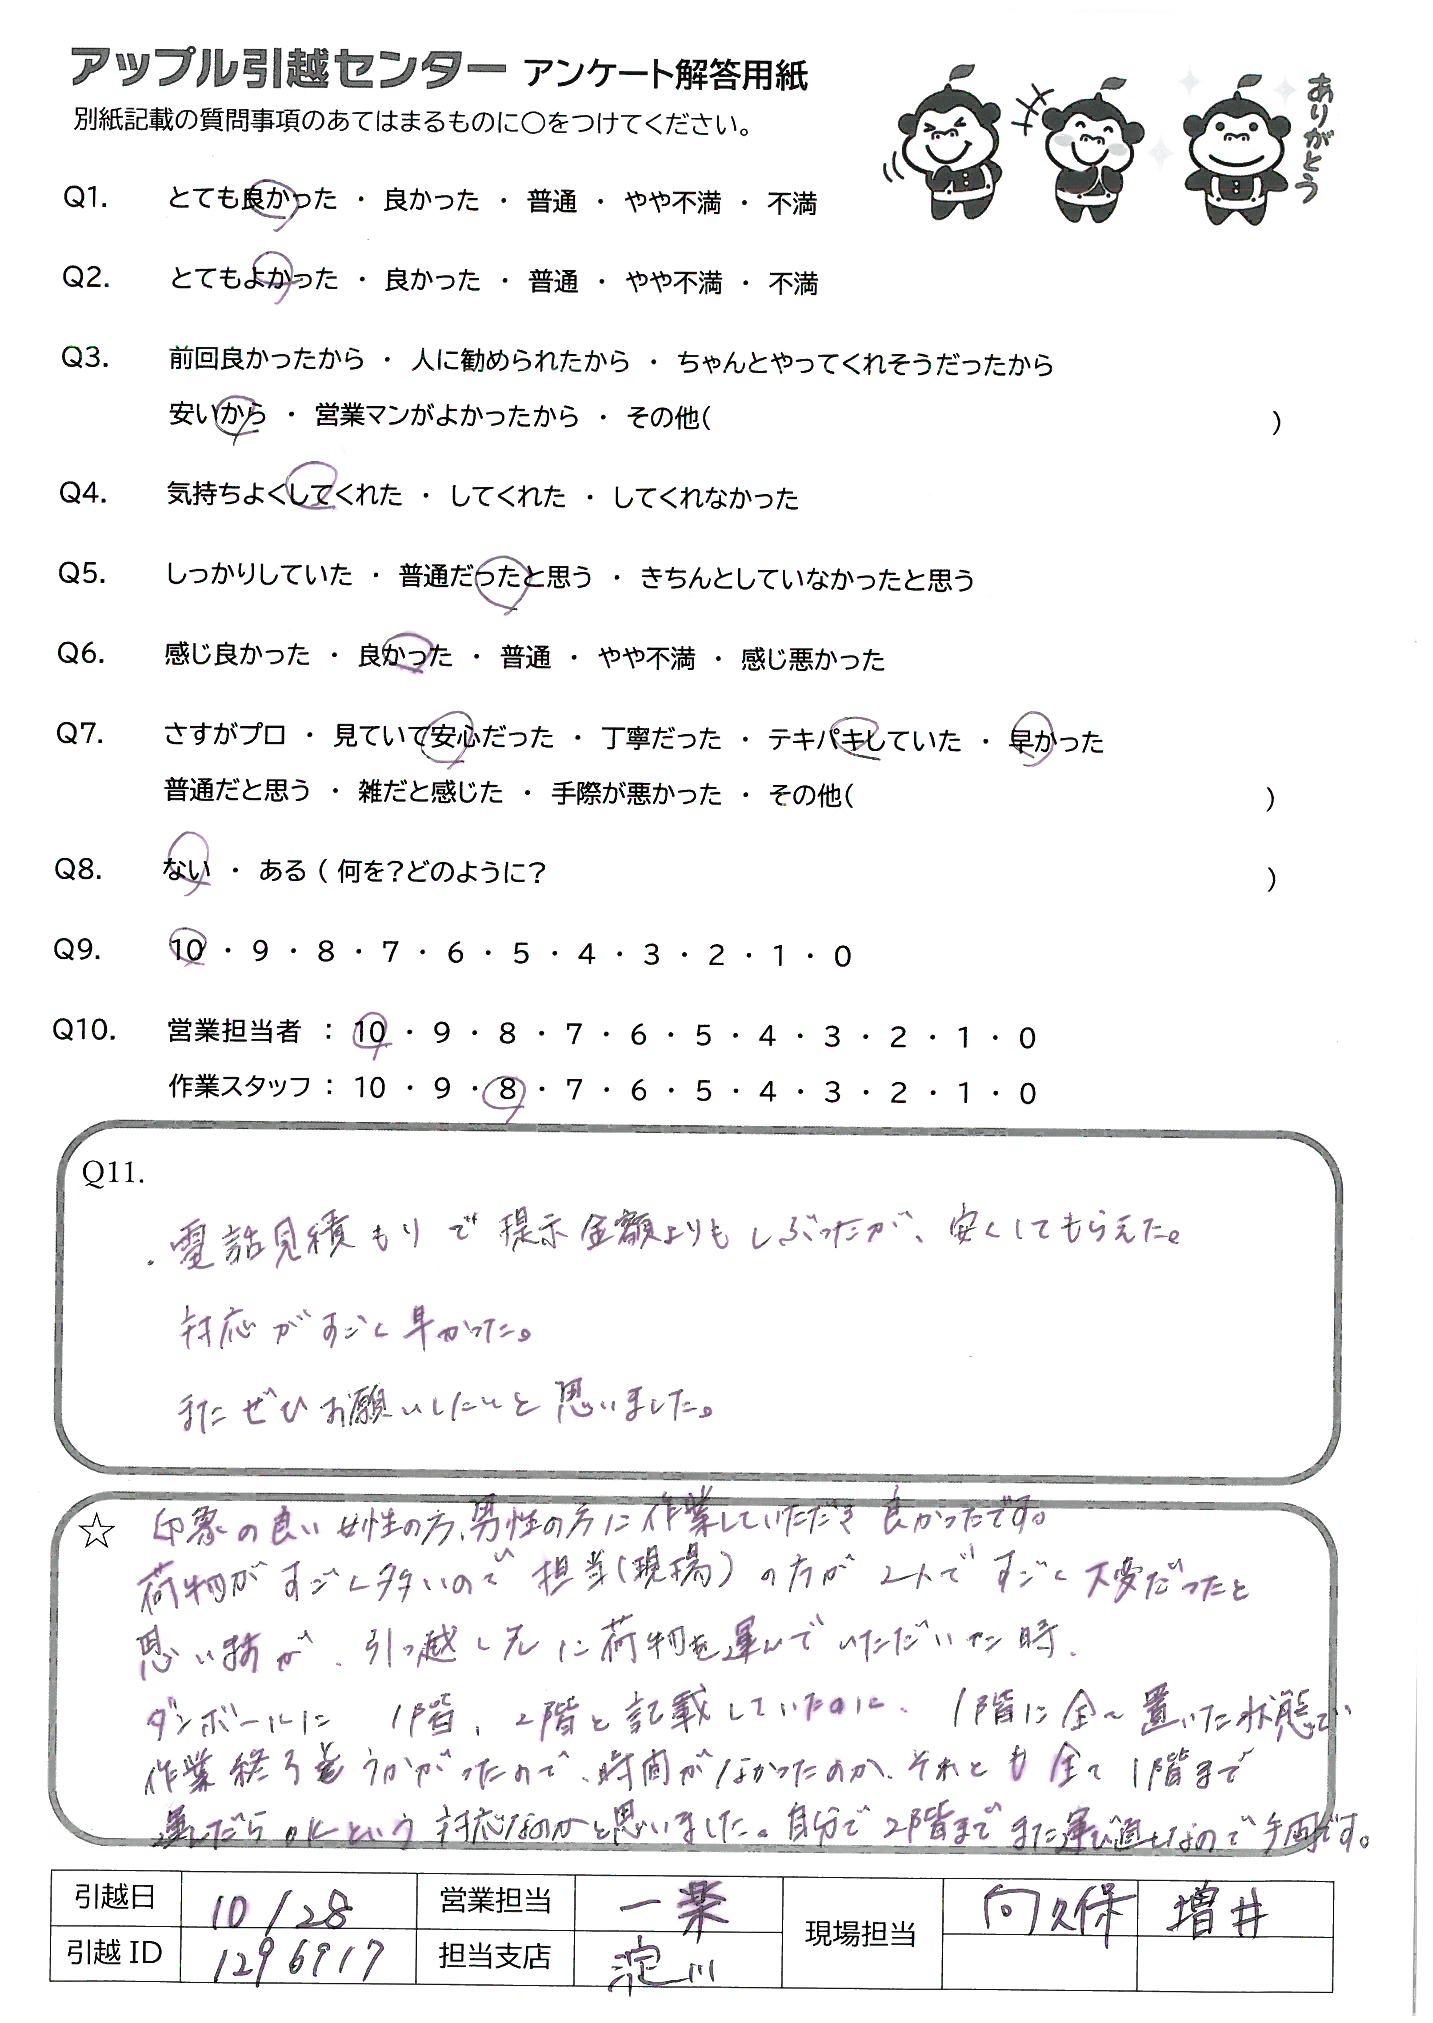 アップル引越センター アンケート解答用紙
ありがとう
別紙記載の質問事項のあてはまるものに○をつけてください。
Q1. とても良かった ・ 良かった ・ 普通 ・ やや不満 ・ 不満
Q2. とてもよかった ・ 良かった ・ 普通 ・ やや不満 ・ 不満
Q3. 前回良かったから ・ 人に勧められたから ・ ちゃんとやってくれそうだったから
安いから ・ 営業マンがよかったから ・ その他( )
Q4. 気持ちよくしてくれた ・ してくれた ・ してくれなかった
Q5. しっかりしていた ・ 普通だったと思う ・ きちんとしていなかったと思う
Q6. 感じ良かった ・ 良かった ・ 普通 ・ やや不満 ・ 感じ悪かった
Q7. さすがプロ ・ 見ていて安心だった ・ 丁寧だった ・ テキパキしていた ・ 早かった
普通だと思う ・ 雑だと感じた ・ 手際が悪かった ・ その他( )
Q8. ない ・ ある ( 何を?どのように? )
Q9. 10 ・ 9 ・ 8 ・ 7 ・ 6 ・ 5 ・ 4 ・ 3 ・ 2 ・ 1 ・ 0
Q10. 営業担当者 : 10 ・ 9 ・ 8 ・ 7 ・ 6 ・ 5 ・ 4 ・ 3 ・ 2 ・ 1 ・ 0
作業スタッフ : 10 ・ 9 ・ 8 ・ 7 ・ 6 ・ 5 ・ 4 ・ 3 ・ 2 ・ 1 ・ 0
Q11.
・電話見積もりで提示金額よりもしぶったが、安くしてもらえた。
対応がすごく早かった。
またぜひお願いしたいと思いました。
☆ 印象の良い女性の方、男性の方に作業していただき良かったです。
荷物がすごく多いので担当(現場)の方が2人ですごく大変だったと
思いますが、引っ越し先に荷物を運んでいただいた時、
ダンボールに 1階、2階と記載していたのに、1階に全て置いた状態で
作業終了をうかがったので、時間がなかったのか、それとも全て1階まで
運んだらOKという対応なのかと思いました。自分で2階までまた運び直しなので手間です。
引越日 10/28 営業担当 一楽 現場担当 向久保 増井
引越ID 1296917 担当支店 淀川